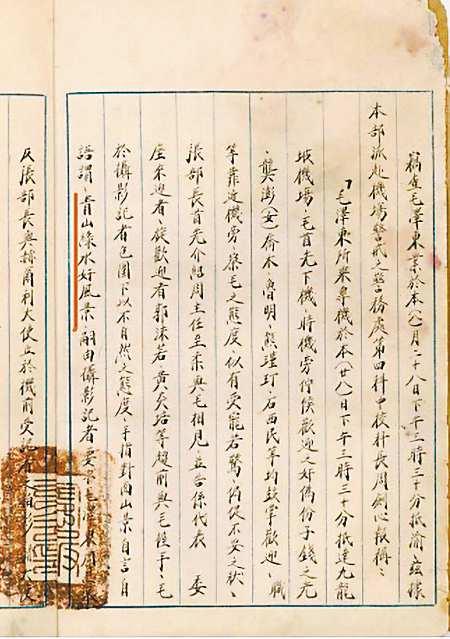 竊查毛澤東業於本(八)月二十八日下午三時三十分抵渝、茲據
本部派赴機場警戒之警務處第四科中校科長周劍心報稱：
「毛澤東所乘專機於本(廿八)日下午三時三十分抵達九龍
坡機場、毛首先下機、時機旁候歡迎之奸偽份子錢之光
、龔澎(女)喬木、魯明、熊瑾玎、石西民等均鼓掌歡迎、職
等靠近機旁、察毛之態度、似有受寵若驚、侷促不安之狀、
張部長首先介紹周主任至柔與毛相見、並告係代表 委
座來迎者、旋歡迎者郭沫若、黃炎培等趨前與毛握手、毛
於攝影記者包圍下以不自然之態度、手指對面山景自言自
語謂、青山綠水好風景、嗣由攝影記者要
及張部長與赫爾利大使立於機前受記者